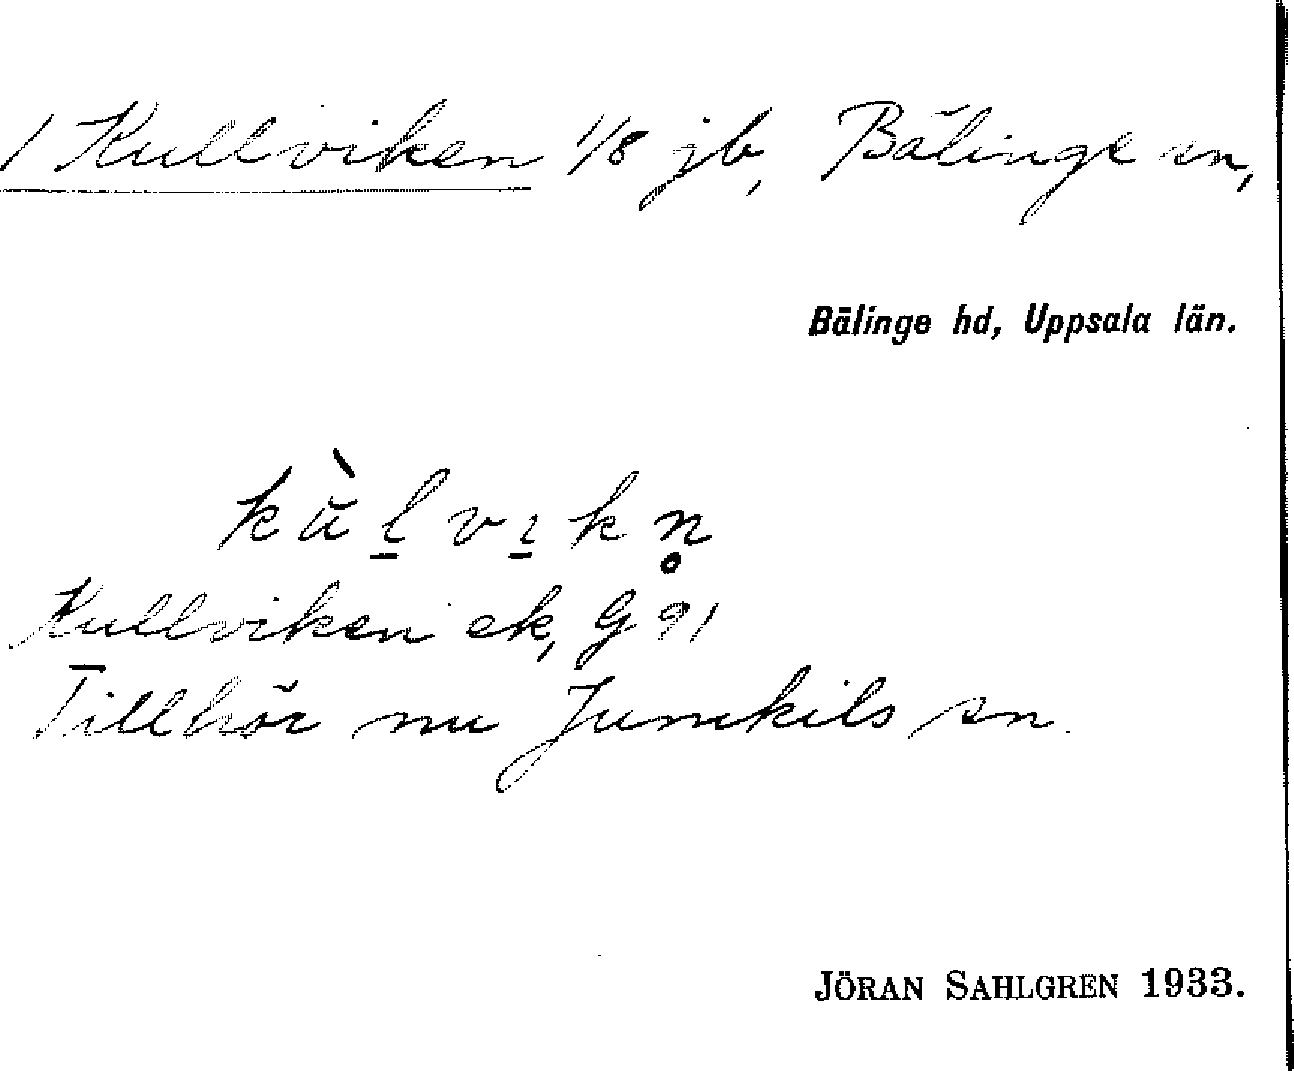 1 Kullviken 1/8 jb, Bälinge sn,
Bälinge hd, Uppsala län.
kùl̲vı̲kn̥
Kullviken ek, G 91
Tillhör nu Jumkils sn.
JÖRAN SAHLGREN 1933.